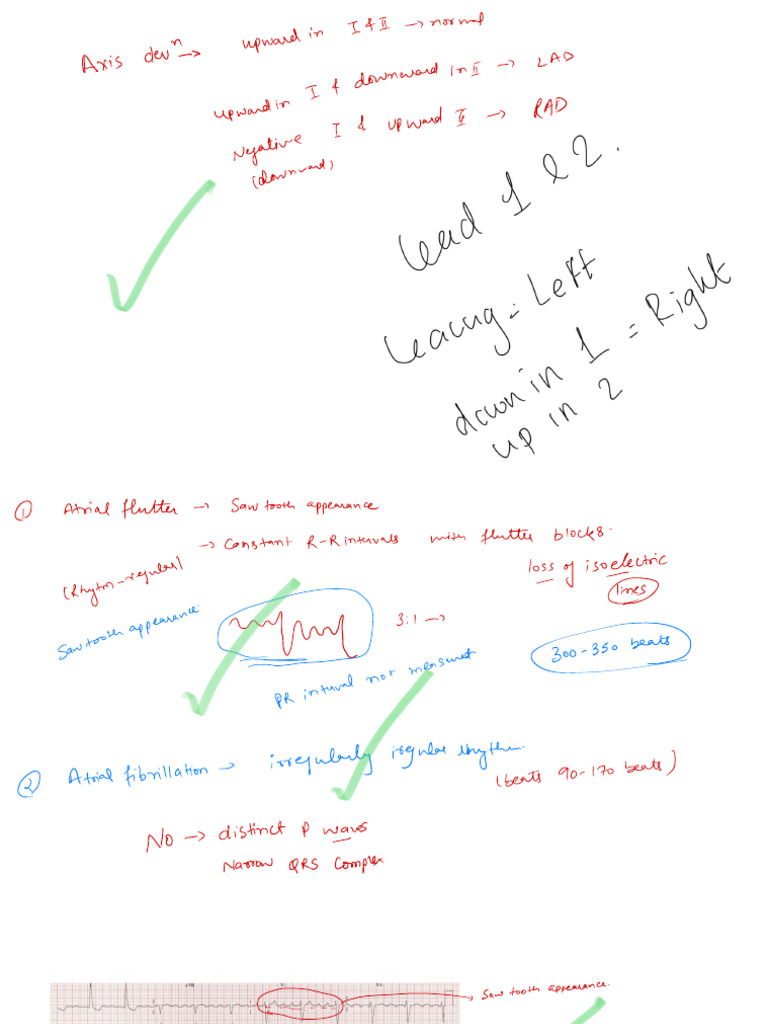 Axis devn → upward in I & II → normal
upward in I & downward in II → LAD
Negative I & upward II → RAD
(downward)
lead 1 & 2.
leaving = Left
down in 1 = Right
up in 2
① Atrial flutter → Saw tooth appearance
→ Constant R-R intervals with flutter blocks.
(Rhytm-regular)
loss of isoelectric
lines
Saw tooth appearance
3:1 →
300-350 beats
PR interval not measured
② Atrial fibrillation → irregularly irregular rhythm.
(beats 90-170 beats)
No → distinct P waves
Narrow QRS Complex
Saw tooth appearance.